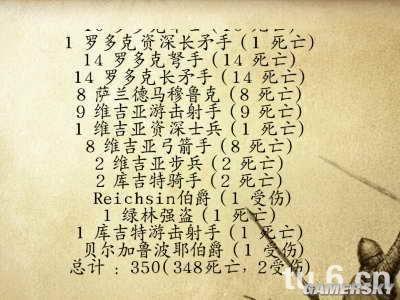 1 罗多克资深长矛手 (1 死亡)
14 罗多克弩手 (14 死亡)
14 罗多克长矛手 (14 死亡)
8 萨兰德马穆鲁克 (8 死亡)
9 维吉亚游击射手 (9 死亡)
1 维吉亚资深士兵 (1 死亡)
8 维吉亚弓箭手 (8 死亡)
2 维吉亚步兵 (2 死亡)
2 库吉特骑手 (2 死亡)
Reichsin伯爵 (1 受伤)
1 绿林强盗 (1 死亡)
1 库吉特游击射手 (1 死亡)
贝尔加鲁波耶伯爵 (1 受伤)
总计 : 350(348死亡, 2受伤)
GAMERSKY